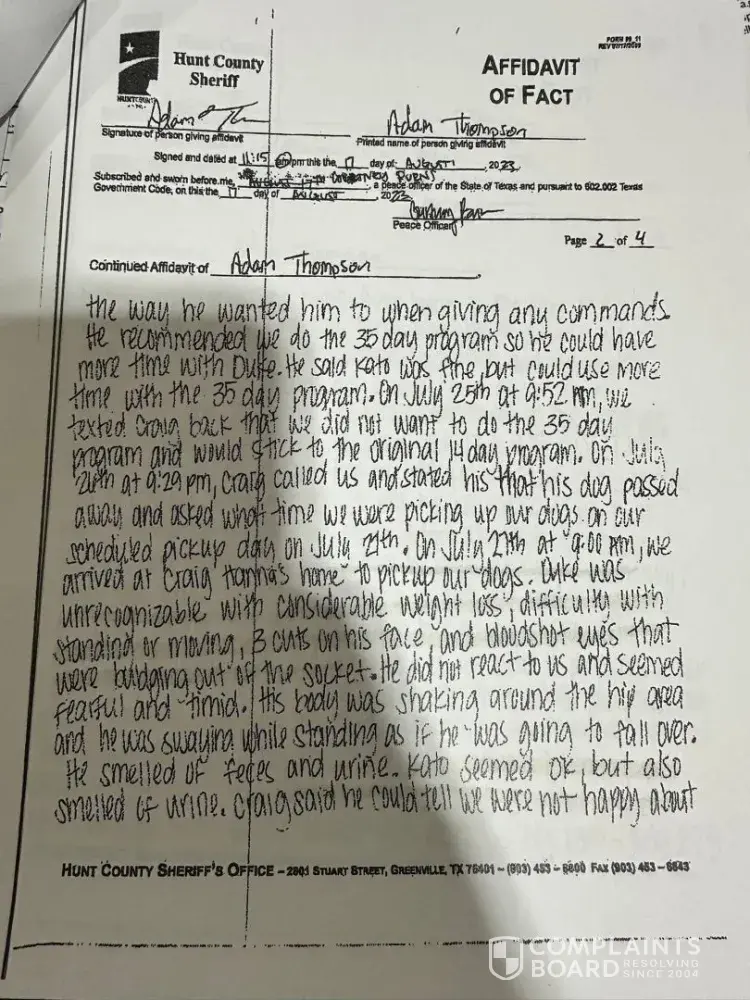 FORM 99_11
Hunt County
Sheriff
AFFIDAVIT
OF FACT
Adam Thompson
Signature of person giving affidavit
Printed name of person giving affidavit
Signed and dated at 11:15 am pm this the 17 day of: AUGUST, 2023
Subscribed and sworn before me, COURTNEY BURNS, a peace officer of the State of Texas and pursuant to 602.002 Texas
Government Code, on this the 17 day of AUGUST, 2023
Peace Officer
Page 2 of 4
Continued Affidavit of Adam Thompson
the way he wanted him to when giving any commands.
He recommended we do the 35 day program so he could have
more time with Duke. He said Kato was fine, but could use more
time with the 35 day program. On July 25th at 9:52 PM, we
texted Craig back that we did not want to do the 35 day
program and would stick to the original 14 day program. On July
26th at 9:29 pm, Craig called us and stated his that his dog passed
away and asked what time we were picking up our dogs on our
scheduled pickup day on July 27th. On July 27th at 9:00 AM, we
arrived at Craig Hanna's home to pickup our dogs. Duke was
unrecognizable with considerable weight loss, difficulty with
standing or moving, 3 cuts on his face, and bloodshot eyes that
were buldging out of the socket. He did not react to us and seemed
fearful and timid. His body was shaking around the hip area
and he was swaying while standing as if he was going to fall over.
He smelled of feces and urine. Kato seemed ok, but also
smelled of urine. Craig said he could tell we were not happy about
HUNT COUNTY SHERIFF'S OFFICE – 2801 STUART STREET, GREENVILLE, TX 75401 – (903) 453 – 6800 FAX (903) 453 – 6843
COMPLAINTS
BOARD RESOLVING
SINCE 2004